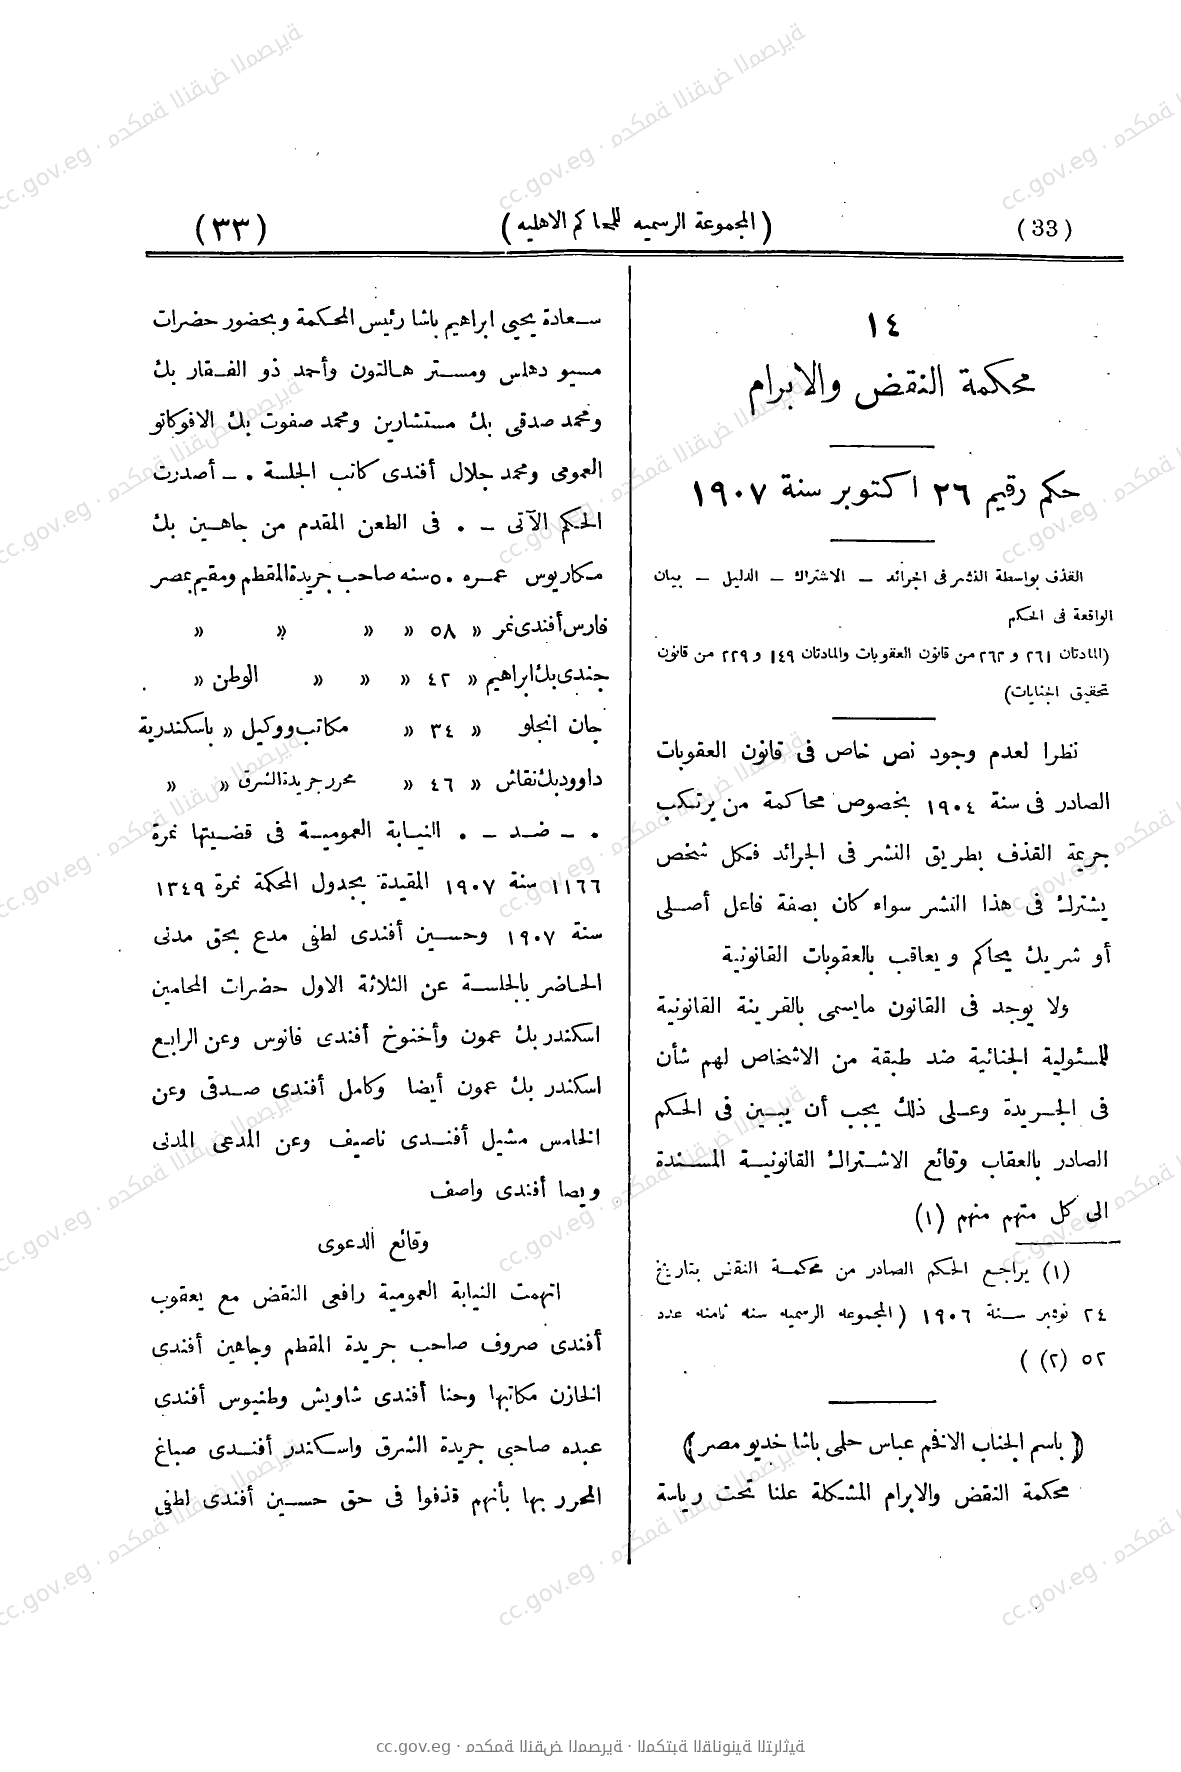 (33)
(المجموعة الرسميه للمحاكم الاهليه)
(٣٣)
١٤
محكمة النقض والابرام
حكم رقيم ٢٦ اكتوبر سنة ١٩٠٧
القذف بواسطة النشر فى الجرائد – الاشتراك – الدليل – بيان
الواقعة فى الحكم
(المادتان ٢٦١ و ٢٦٢ من قانون العقوبات والمادتان ١٤٩ و ٢٢٩ من قانون
تحقيق الجنايات)
نظرا لعدم وجود نص خاص فى قانون العقوبات
الصادر فى سنة ١٩٠٤ بخصوص محاكمة من يرتكب
جريمة القذف بطريق النشر فى الجرائد فكل شخص
يشترك فى هذا النشر سواء كان بصفة فاعل أصلى
أو شريك يحاكم ويعاقب بالعقوبات القانونية
ولا يوجد فى القانون مايسمى بالقرينة القانونية
للمسئولية الجنائية ضد طبقة من الاشخاص لهم شأن
فى الجريدة وعلى ذلك يجب أن يبين فى الحكم
الصادر بالعقاب وقائع الاشتراك القانونية المسندة
الى كل متهم منهم (١)
(١) يراجع الحكم الصادر من محكمة النقض بتاريخ
٢٤ نوفمبر سنة ١٩٠٦ (المجموعه الرسميه سنه ثامنه عدد
٥٢ (٢) )
(باسم الجناب الافخم عباس حلمى باشا خديو مصر)
محكمة النقض والابرام المشكلة علنا تحت رياسة
سعادة يحيى ابراهيم باشا رئيس المحكمة وبحضور حضرات
مسيو دهلس ومستر هالتون وأحمد ذو الفقار بك
ومحمد صدقى بك مستشارين ومحمد صفوت بك الافوكاتو
العمومى ومحمد جلال أفندى كاتب الجلسة . – أصدرت
الحكم الآتى – . فى الطعن المقدم من جاهين بك
مكاريوس عمره ٥٠ سنه صاحب جريدة المقطم ومقيم بمصر
فارس أفندى نمر « ٥٨ « « « «
جندى بك ابراهيم « ٤٢ « « « الوطن «
جان انجلو « ٣٤ « مكاتب ووكيل « باسكندرية
داوود بك نقاش « ٤٦ « محرر جريدة الشرق « «
. – ضد – . النيابة العمومية فى قضيتها نمرة
١١٦٦ سنة ١٩٠٧ المقيدة بجدول المحكمة نمرة ١٣٤٩
سنة ١٩٠٧ وحسين أفندى لطفى مدع بحق مدنى
الحاضر بالجلسة عن الثلاثة الاول حضرات المحامين
اسكندر بك عمون وأخنوخ أفندى فانوس وعن الرابع
اسكندر بك عمون أيضا وكامل أفندى صدقى وعن
الخامس مشيل أفندى ناصيف وعن المدعى المدنى
ويصا أفندى واصف
وقائع الدعوى
اتهمت النيابة العمومية رافعى النقض مع يعقوب
أفندى صروف صاحب جريدة المقطم وجاهين أفندى
الخازن مكاتبها وحنا أفندى شاويش وطنيوس أفندى
عبده صاحبى جريدة الشرق واسكندر أفندى صباغ
المحرر بها بأنهم قذفوا فى حق حسين أفندى لطفى
cc.gov.eg · محكمة النقض المصرية · المكتبة القانونية التراثية